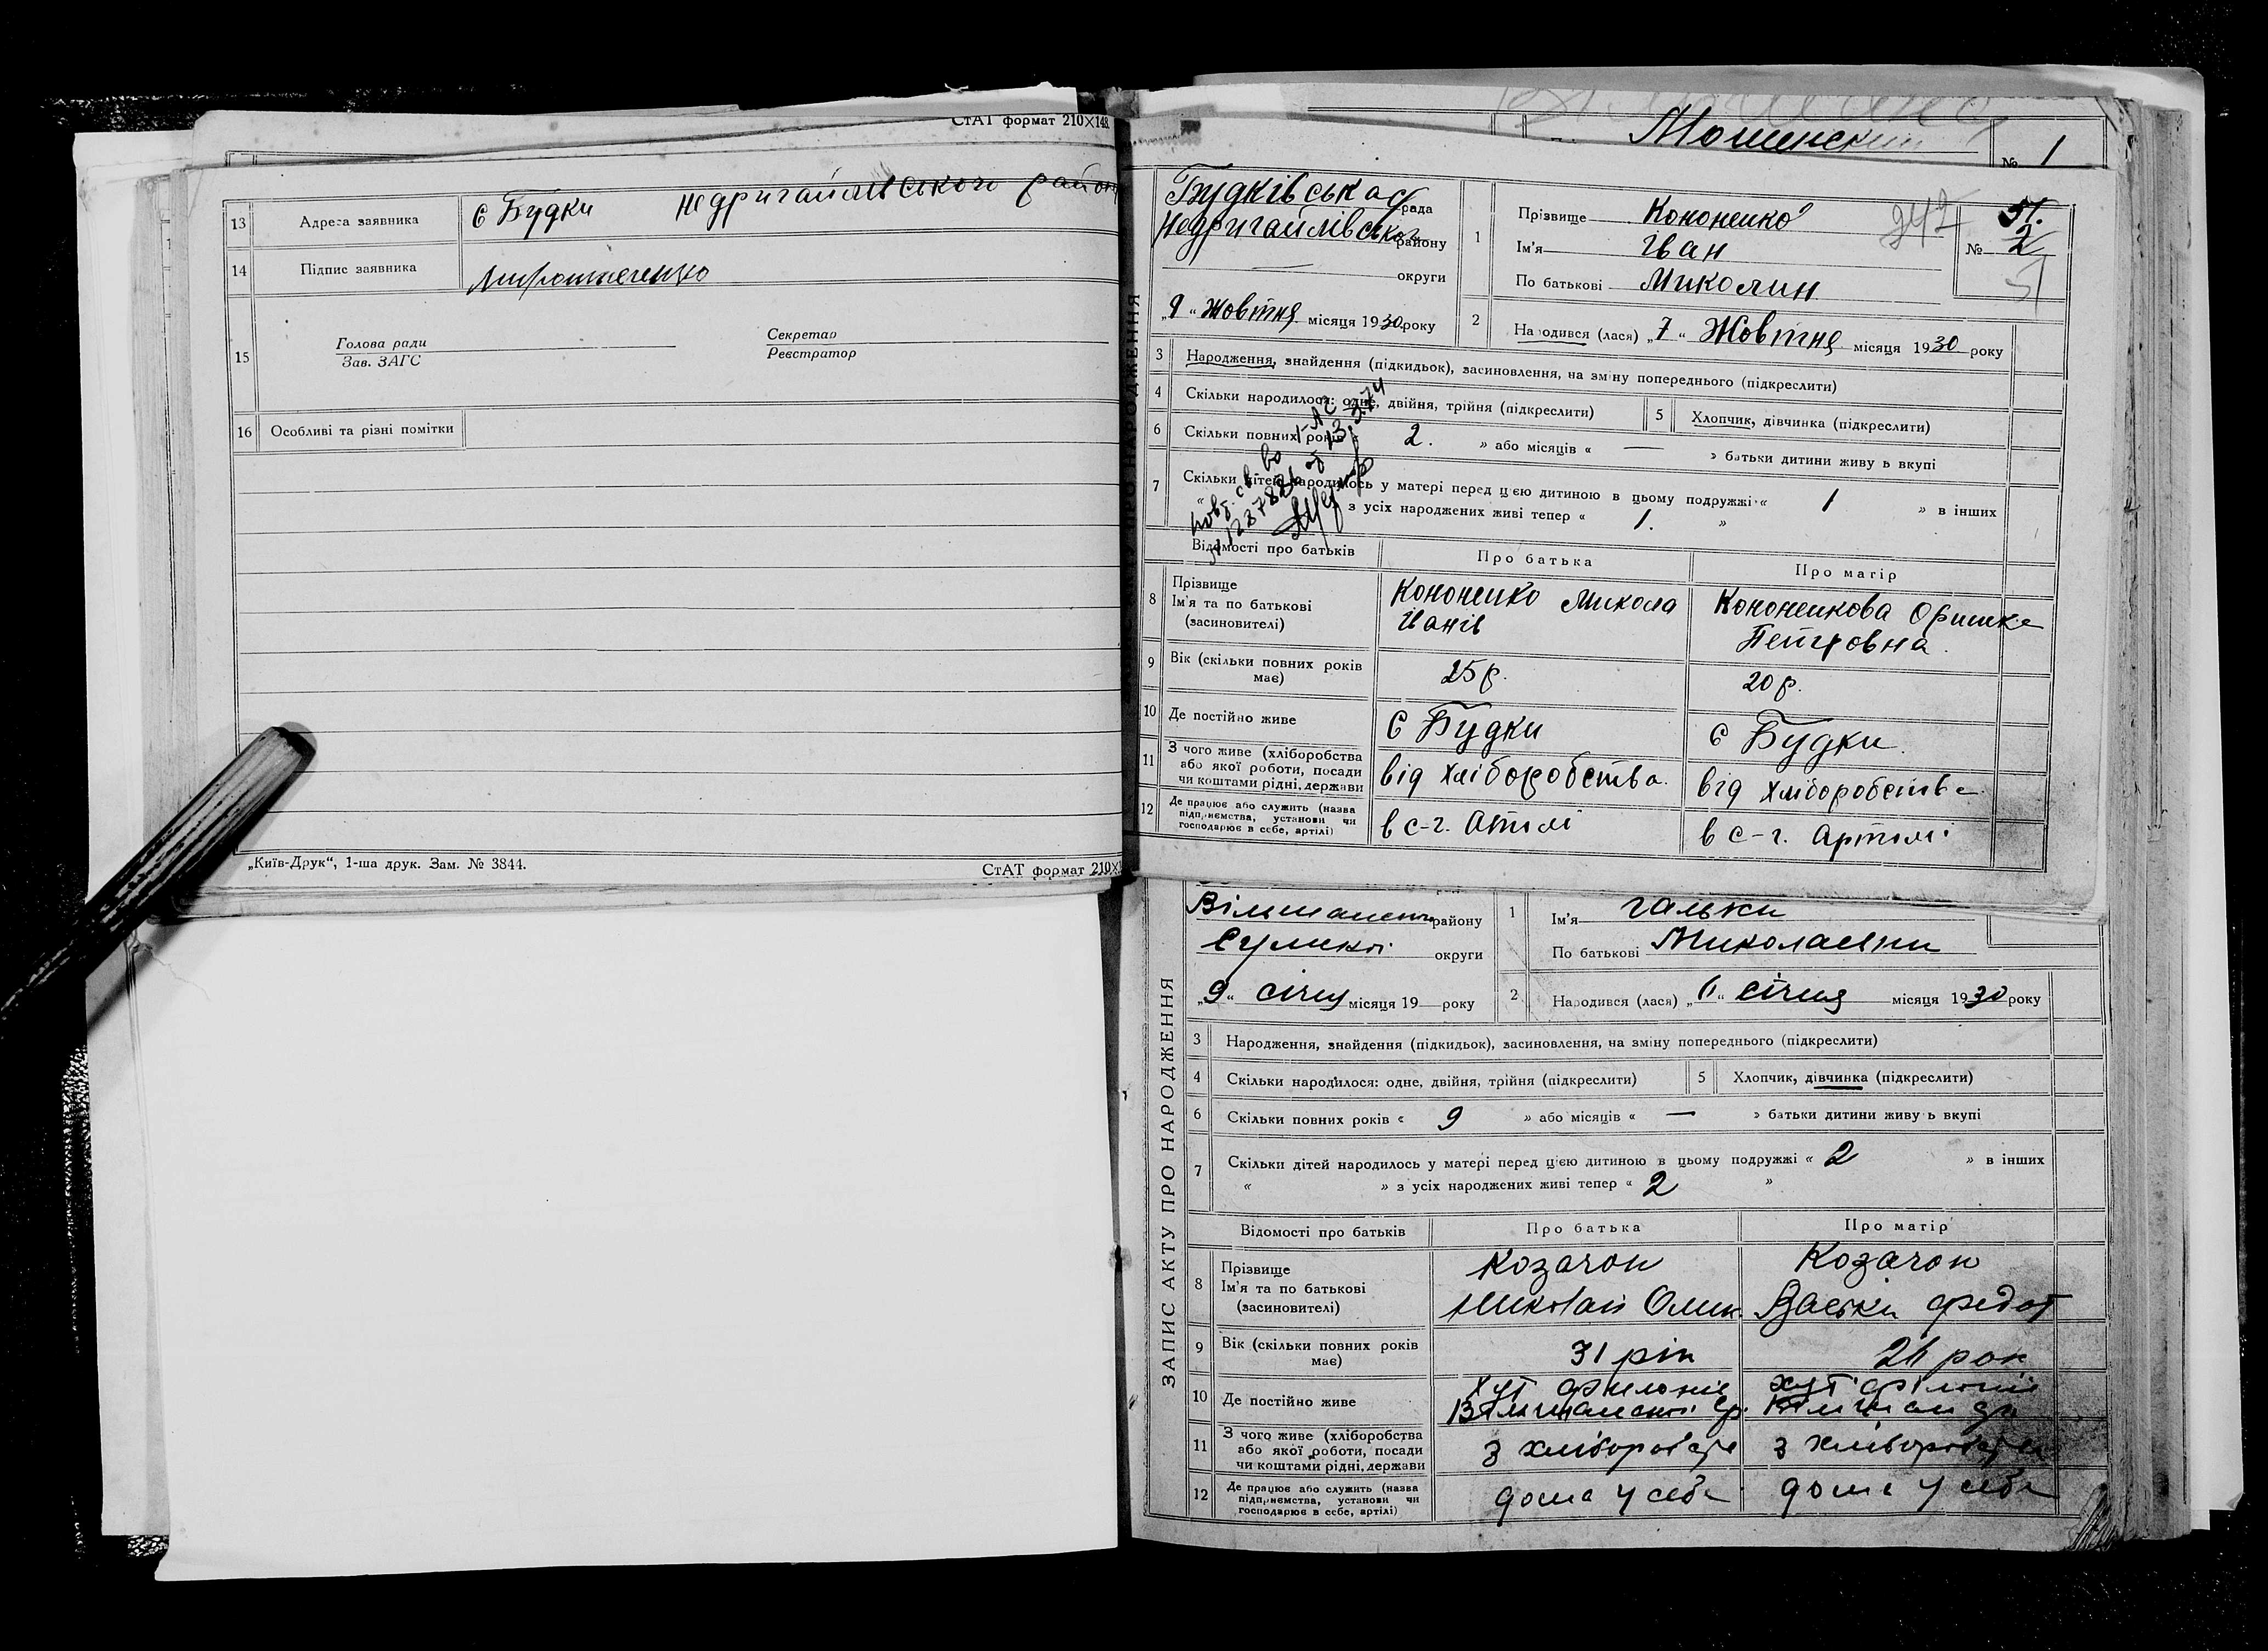 СтАТ формат 210×148
13 Адреса заявника с Будки Недригайлівського району
14 Підпис заявника
15 Голова ради Секретар
Зав. ЗАГС Реєстратор
16 Особливі та різні помітки
„Київ-Друк“, 1-ша друк. Зам. № 3844.
СтАТ формат 210×1
№ 1
Будківська рада
Недригайлівськог району
— округи
„9“ Жовтня місяця 1930 року
1 Прізвище Кононенко
Ім'я Іван
По батькові Миколин
242
51.
№ 2
51
2 Народився (лася) „7“ Жовтня місяця 1930 року
3 Народження, знайдення (підкидьок), засиновлення, на зміну попереднього (підкреслити)
4 Скільки народилося: одне, двійня, трійня (підкреслити) 5 Хлопчик, дівчинка (підкреслити)
6 Скільки повних років « 2. » або місяців « — » батьки дитини живуть вкупі
7 Скільки дітей народилось у матері перед цією дитиною в цьому подружжі « 1 » в інших
« з усіх народжених живі тепер « 1. »
Відомості про батьків Про батька Про матір
8 Прізвище
Ім'я та по батькові
(засиновителі)
Кононенко Микола
Іванів
Кононенкова Оришка
Петровна
9 Вік (скільки повних років має) 25 р. 20 р.
10 Де постійно живе с Будки с Будки
11 З чого живе (хліборобства
або якої роботи, посади
чи коштами рідні, держави
від хліборобства. від хліборобства
12 Де працює або служить (назва
підприємства, установи чи
господарює в себе, артілі)
в с-г. Атілі в с-г. Артілі
ЗАПИС АКТУ ПРО НАРОДЖЕННЯ
району
округи
„9“ січня місяця 19 — року
1 Ім'я Гальки
По батькові Миколаевни
2 Народився (лася) „6“ січня місяця 1930 року
3 Народження, знайдення (підкидьок), засиновлення, на зміну попереднього (підкреслити)
4 Скільки народилося: одне, двійня, трійня (підкреслити) 5 Хлопчик, дівчинка (підкреслити)
6 Скільки повних років « 9 » або місяців « — » батьки дитини живуть вкупі
7 Скільки дітей народилось у матері перед цією дитиною в цьому подружжі « 2 » в інших
« » з усіх народжених живі тепер « 2 »
Відомості про батьків Про батька Про матір
8 Прізвище
Ім'я та по батькові
(засиновителі)
Козачок
Николай Олик.
Козачок
Федот
9 Вік (скільки повних років має) 31 рік 26 рок
10 Де постійно живе
хут
хут
11 З чого живе (хліборобства
або якої роботи, посади
чи коштами рідні, держави
з з
12 Де працює або служить (назва
підприємства, установи чи
господарює в себе, артілі)
дома у себе дома у себе